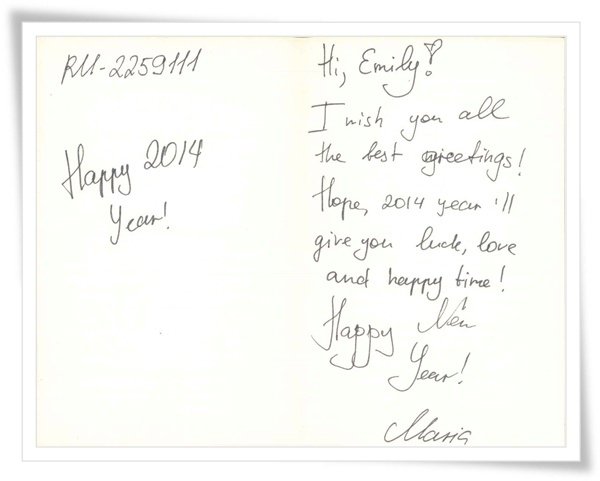 RU-2259111
Happy 2014
Year!
Hi, Emily!
I wish you all
the best greetings!
Hope, 2014 year 'll
give you luck, love
and happy time!
Happy New
Year!
Maria